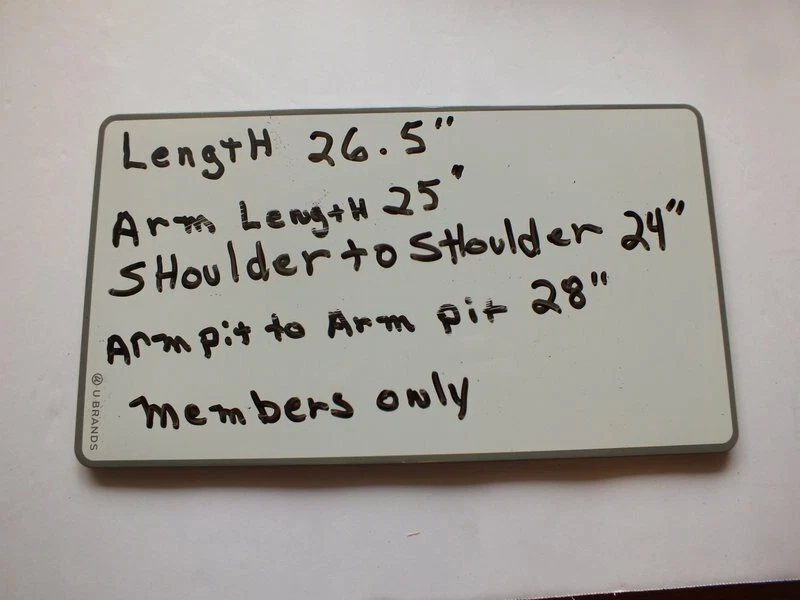 LengtH 26.5"
Arm LengtH 25"
SHoulder to SHoulder 24"
Arm pit to Arm pit 28"
members only
U BRANDS